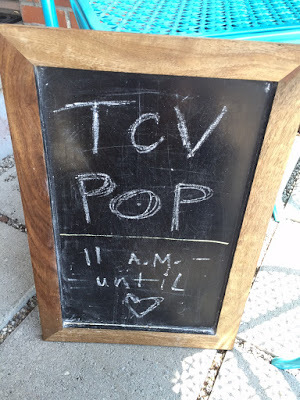 TCV
POP
11 A.M. -
- until